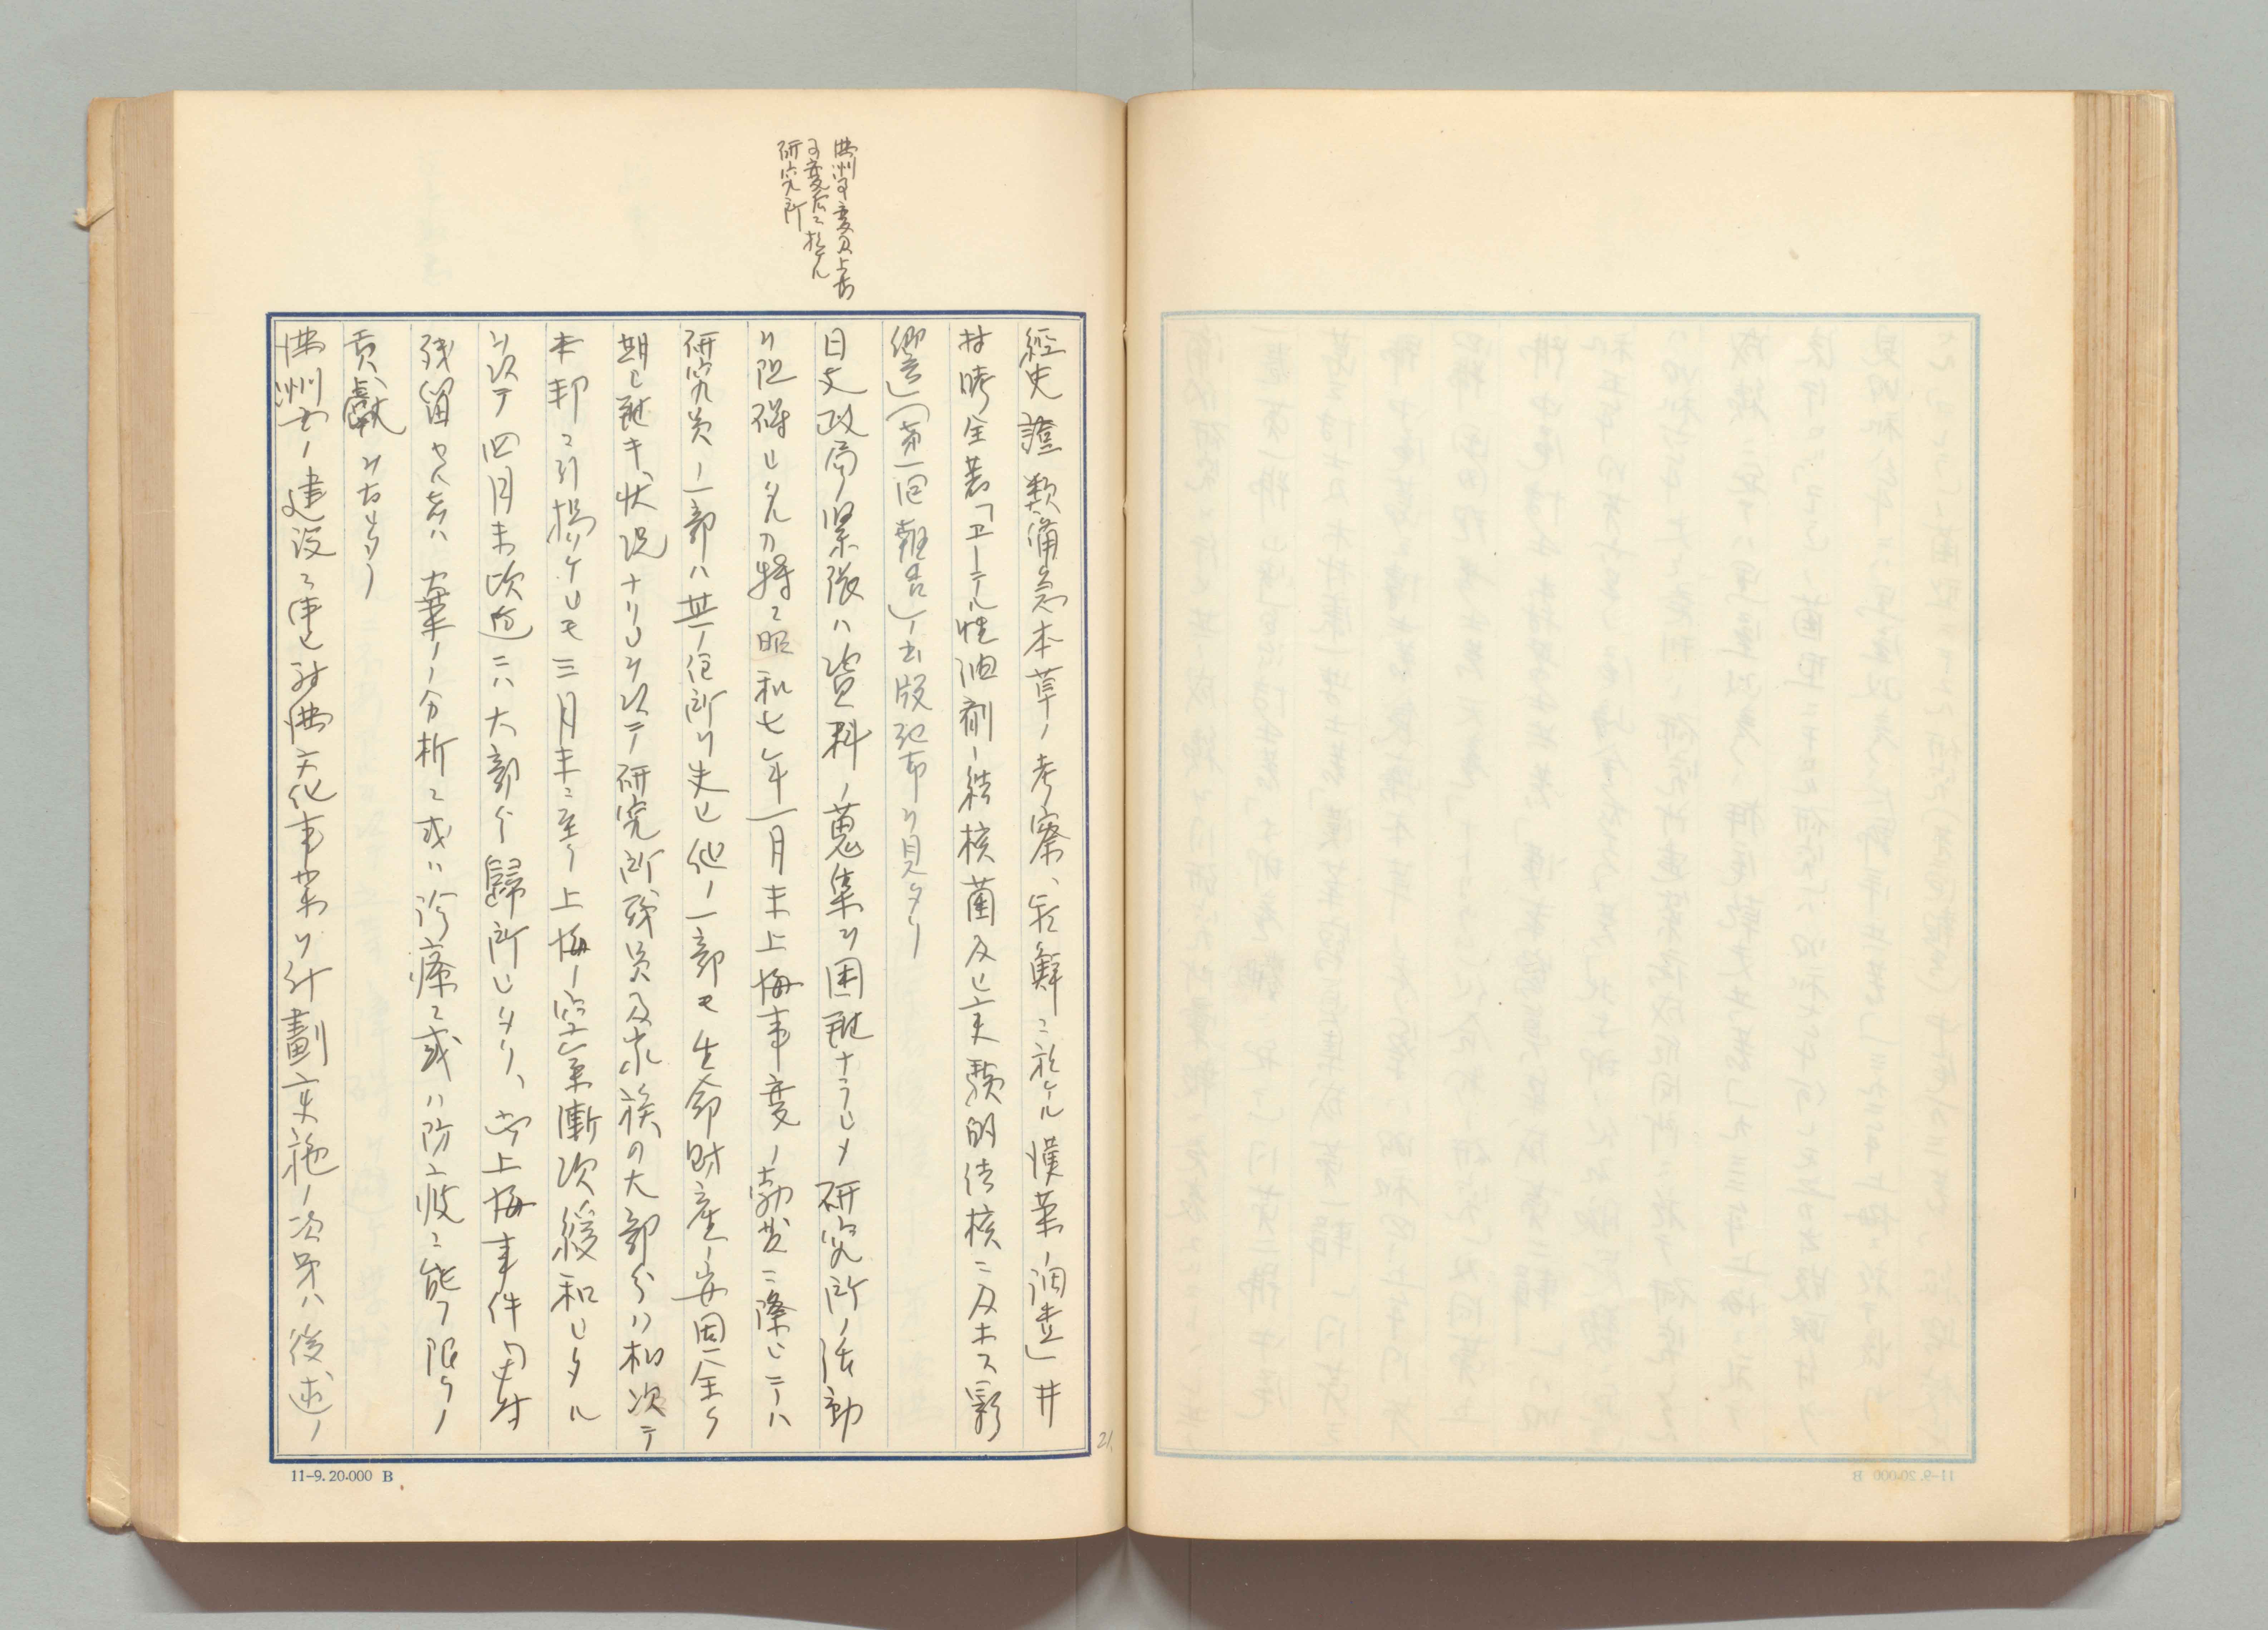 満州事変及上海
事変下ニ於ケル
研究所
經史證類備急本草ノ考察、朝鮮ニ於ケル漢薬ノ調査」井
村時全著「エーテル性油剤ノ結核菌及ヒ実験的結核ニ及ホス影
響」(第一回報告)ノ出版配布ヲ見タリ
日支政局ノ緊張ハ資料ノ蒐集ヲ困難ナラシメ研究所ノ活動
ヲ阻碍シタルカ特ニ昭和七年一月末上海事変ノ勃発ニ際シテハ
研究員ノ一部ハ其ノ住所ヲ失ヒ他ノ一部モ生命財産ノ安固全ク
期シ難キ状況ナリシヲ以テ研究所残員及家族ノ大部分ハ相次テ
本邦ニ引揚ケシモ三月末ニ至リ上海ノ空気漸次緩和シタル
ヲ以テ四月末頃迄ニハ大部分歸所シタリ、尚上海事件当時
残留セル者ハ薬ノ分析ニ或ハ診療ニ或ハ防疫ニ能フ限リノ
貢獻ヲナシタリ
満洲国ノ建設ニ伴ヒ対満文化事業ヲ計劃実施ノ次第ハ後述ノ
21.
11-9.20.000 B